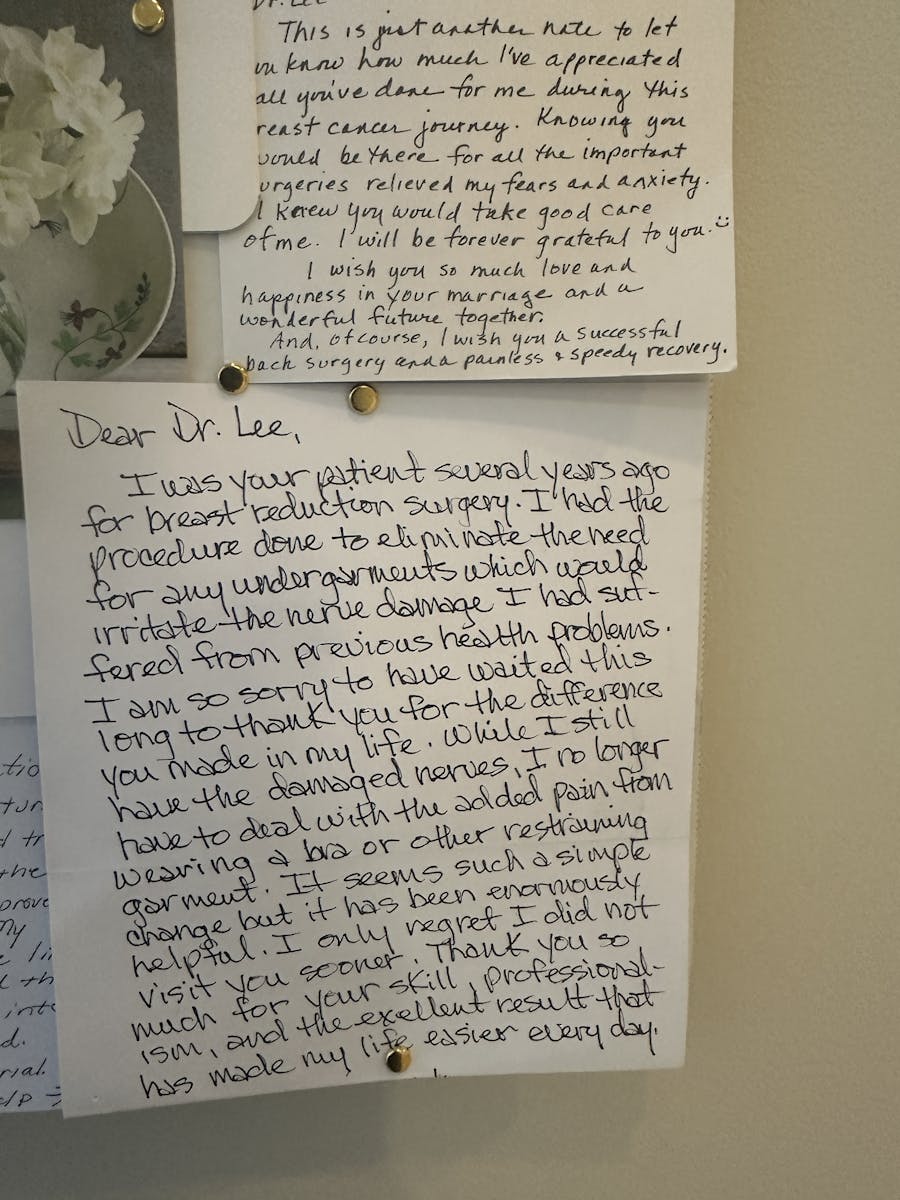 Dr. Lee
This is just another note to let
know how much I've appreciated
all you've done for me during this
reast cancer journey. Knowing you
would be there for all the important
urgeries relieved my fears and anxiety.
I knew you would take good care
of me. I will be forever grateful to you. :)
I wish you so much love and
happiness in your marriage and a
wonderful future together.
And, of course, I wish you a successful
back surgery and a painless & speedy recovery.
Dear Dr. Lee,
I was your patient several years ago
for breast reduction surgery. I had the
procedure done to eliminate the need
for any undergarments which would
irritate the nerve damage I had suf-
fered from previous health problems.
I am so sorry to have waited this
long to thank you for the difference
you made in my life. While I still
have the damaged nerves, I no longer
have to deal with the added pain from
wearing a bra or other restraining
garment. It seems such a simple
change but it has been enormously
helpful. I only regret I did not
visit you sooner. Thank you so
much for your skill, professional-
ism, and the excellent result that
has made my life easier every day.
tio
tur
d tr
the
prove
my
e li
th
inte
d.
rial.